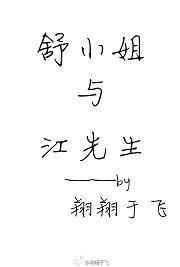 舒小姐
与
江先生
——by
翔翔于飞
@翔翔于飞